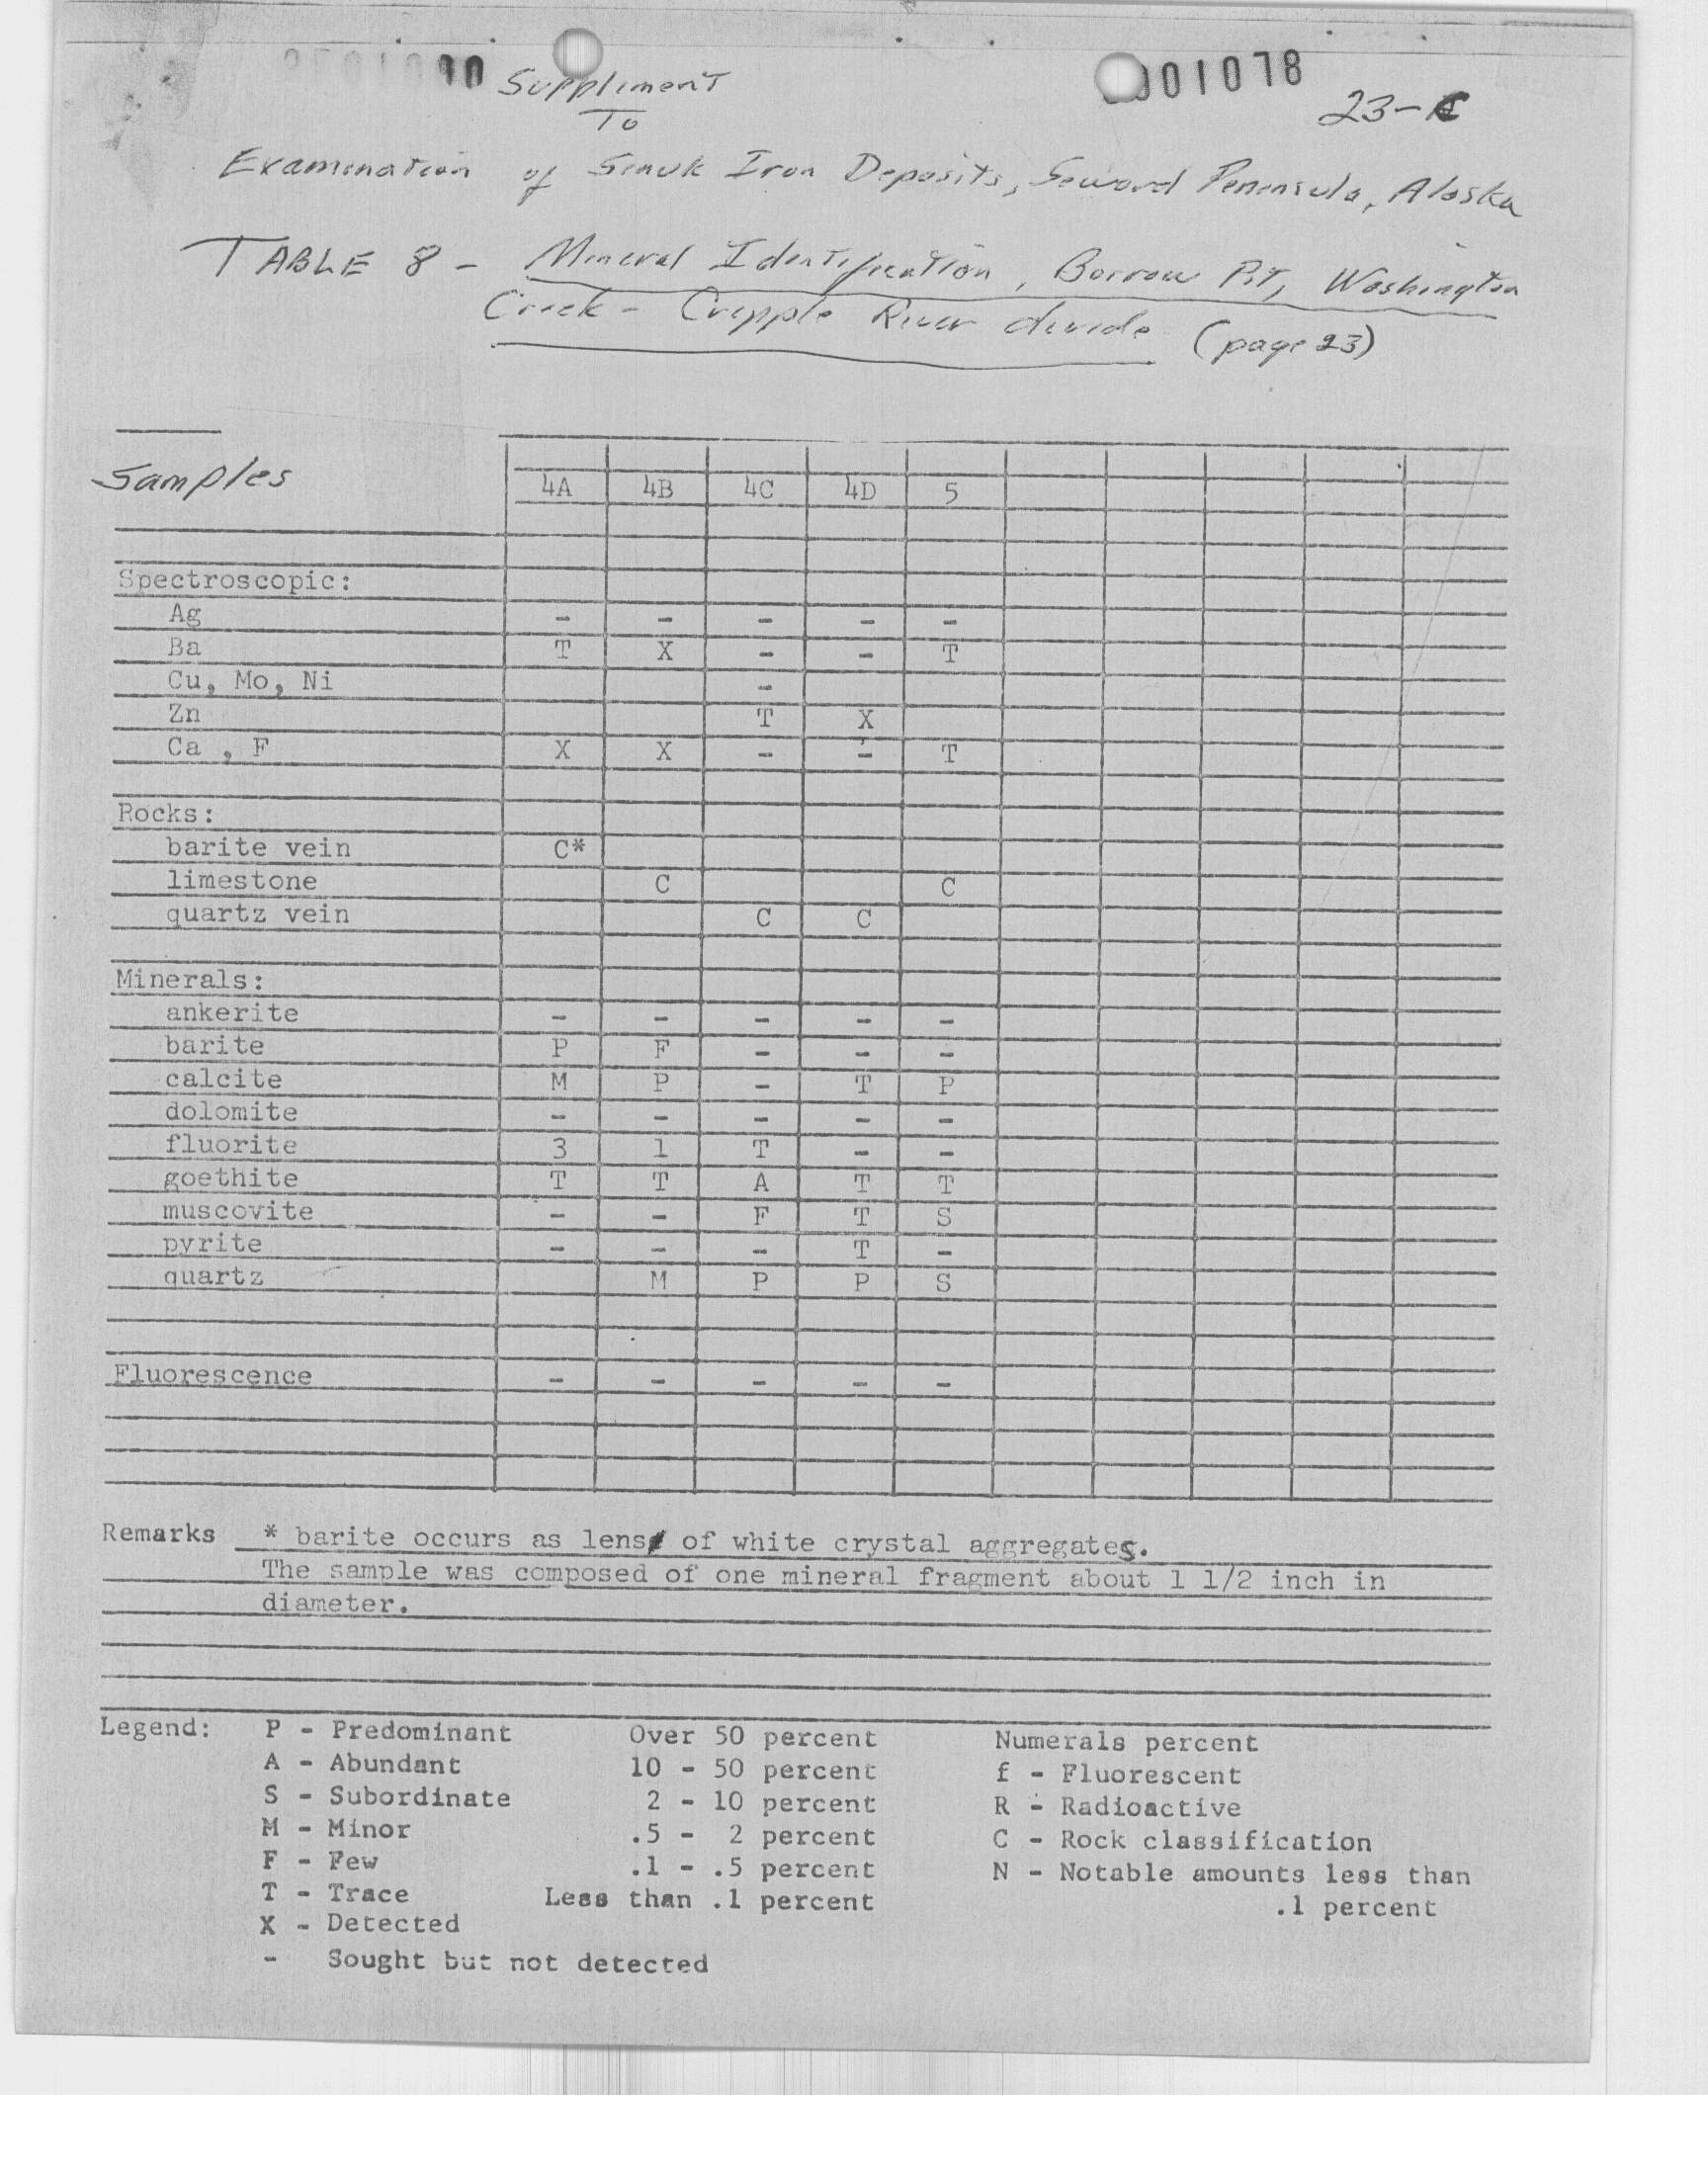 Suppliment
001078
To
23-C
Examination of Sinuk Iron Deposits, Seward Peninsula, Alaska
TABLE 8 - Mineral Identification, Borrow Pit, Washington
Creek - Cripple River divide (page 23)
Samples 4A 4B 4C 4D 5
Spectroscopic:
Ag - - - - -
Ba T X - - T
Cu, Mo, Ni -
Zn T X
Ca , F X X - - T
Rocks:
barite vein C*
limestone C C
quartz vein C C
Minerals:
ankerite - - - - -
barite P F - - -
calcite M P - T P
dolomite - - - - -
fluorite 3 1 T - -
goethite T T A T T
muscovite - - F T S
pyrite - - - T -
quartz M P P S
Fluorescence - - - - -
Remarks * barite occurs as lens of white crystal aggregates.
The sample was composed of one mineral fragment about 1 1/2 inch in
diameter.
Legend: P - Predominant Over 50 percent Numerals percent
A - Abundant 10 - 50 percent f - Fluorescent
S - Subordinate 2 - 10 percent R - Radioactive
M - Minor .5 - 2 percent C - Rock classification
F - Few .1 - .5 percent N - Notable amounts less than
T - Trace Less than .1 percent .1 percent
X - Detected
- Sought but not detected